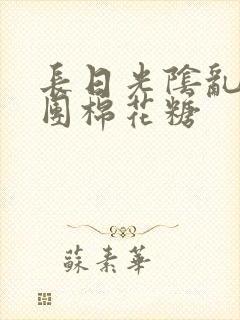 長日光陰亂
團棉花糖
蘇素華